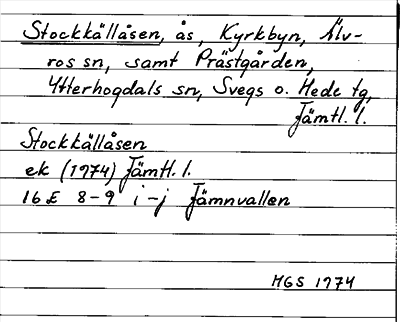 Stockkällåsen, ås, Kyrkbyn, Älv-
ros sn, samt Prästgården,
Ytterhogdals sn, Svegs o. Hede tg,
Jämtl. l.
Stockkällåsen
ek (1974) Jämtl. l.
16 E 8-9 i-j Jämnvallen
MGS 1974